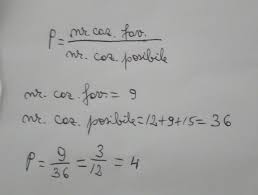 P = nr. caz. fav. / nr. caz. posibile
nr. caz. fav. = 9
nr. caz. posibile = 12+9+15 = 36
P = 9/36 = 3/12 = 4